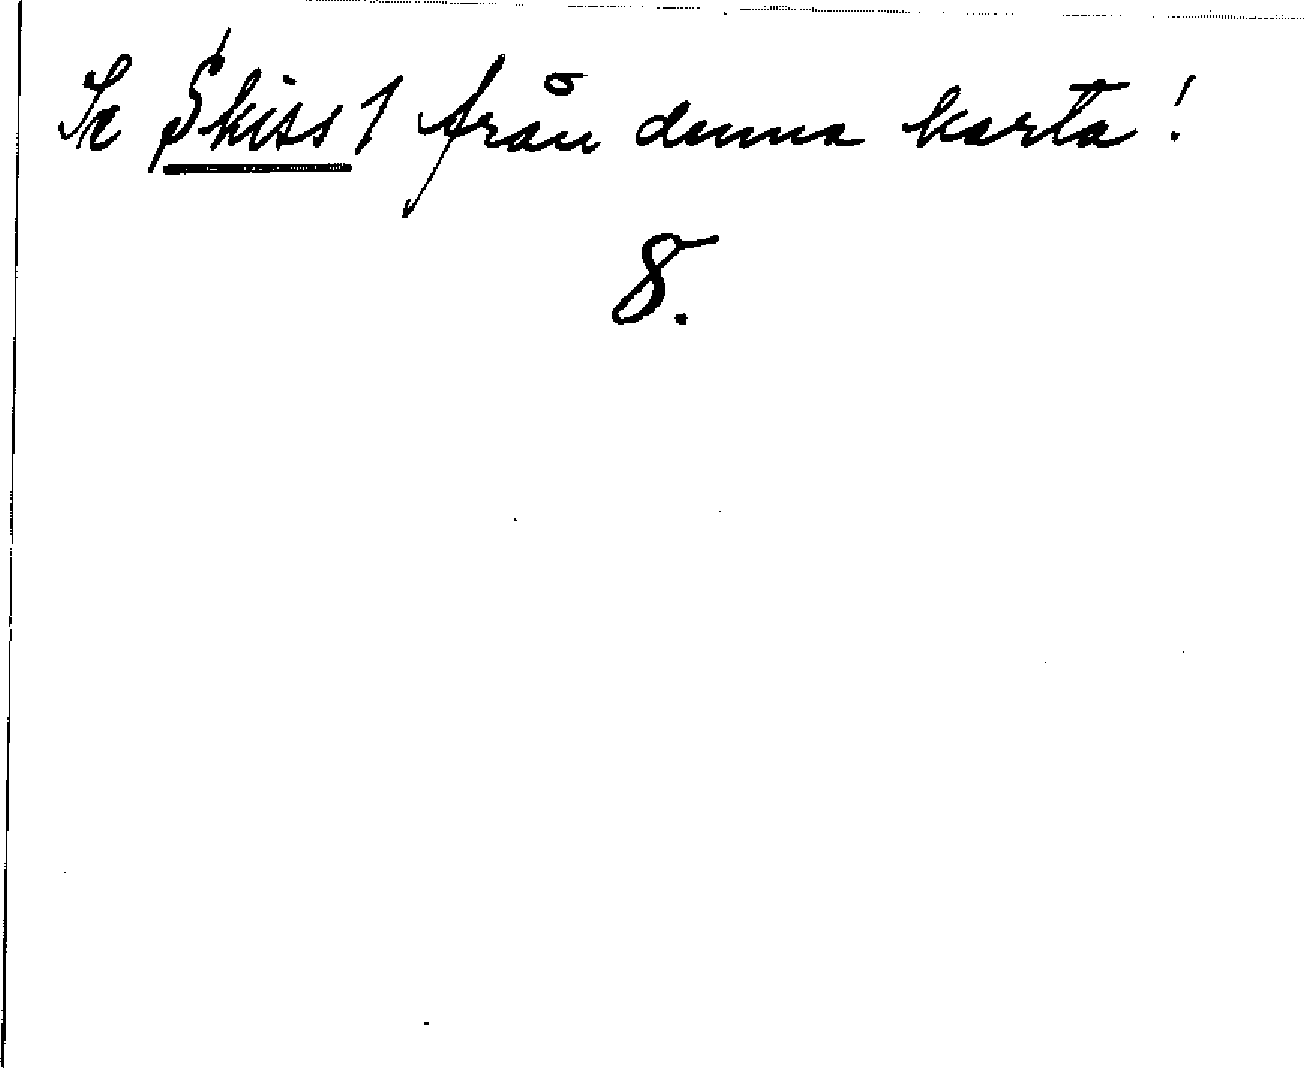 Se Skiss 1 från denna karta!
8.